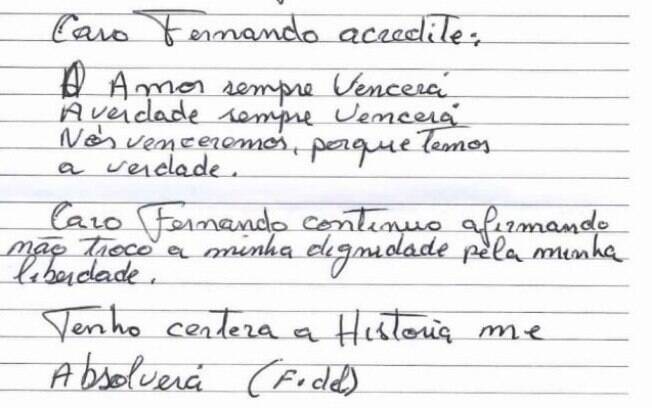 Caro Fernando acredite:
O Amor sempre Vencerá
A verdade sempre Vencerá
Nós venceremos, porque Temos
a verdade.
Caro Fernando continuo afirmando
não troco a minha dignidade pela minha
liberdade.
Tenho certeza a Historia me
Absolverá (Fidel)